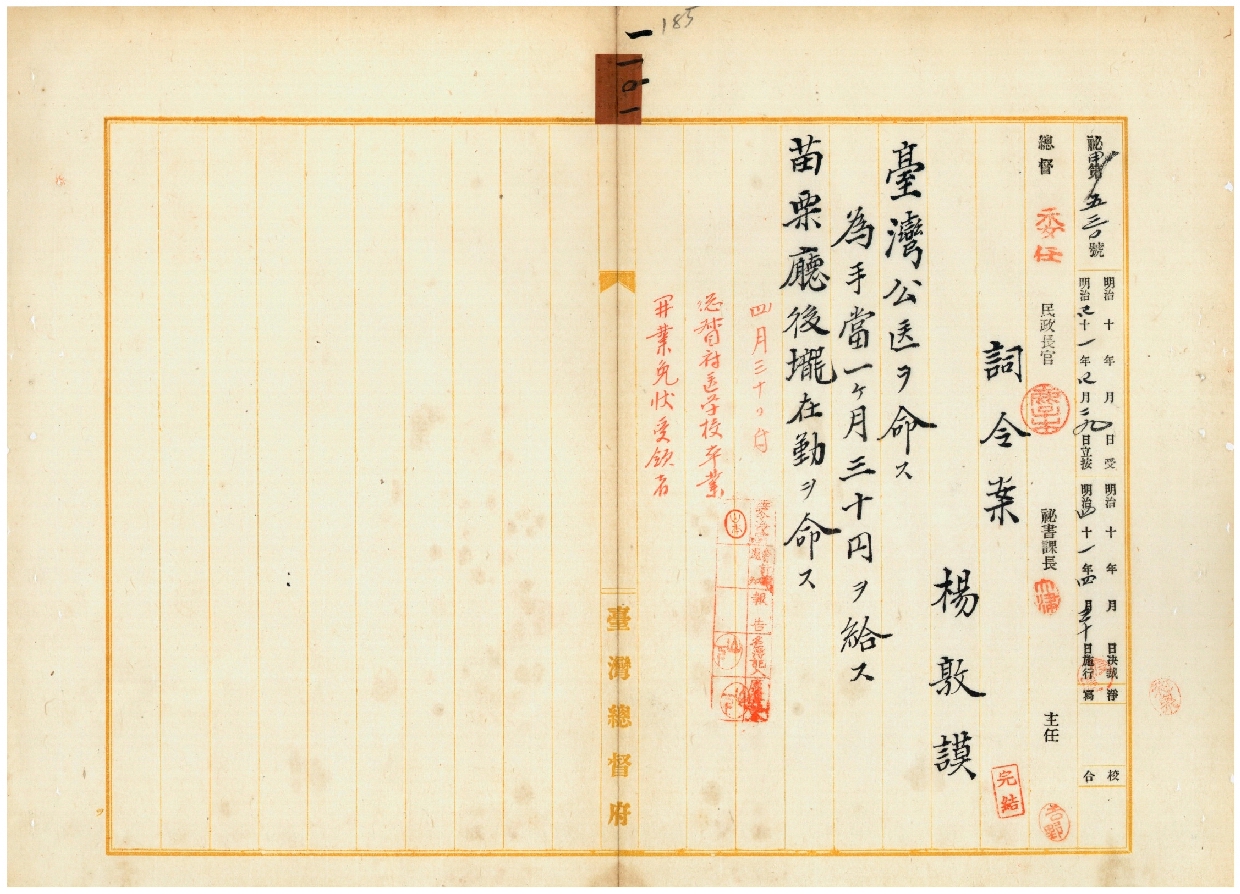 185
一一〇一
祕甲第五三〇號
明治 十 年 月 日受
明治四十一年四月二九日立按
明治 十 年 月 日決裁
明治四十一年四月三十日施行
淨寫
校合
總督 委任 民政長官 祕書課長 主任
詞令案
楊敦謨
臺灣公医ヲ命ス
為手當一ヶ月三十円ヲ給ス
苗栗廳後壠在勤ヲ命ス
四月三十日付
総督府医学校卒業
開業免状受領者
報告
完結
臺灣總督府